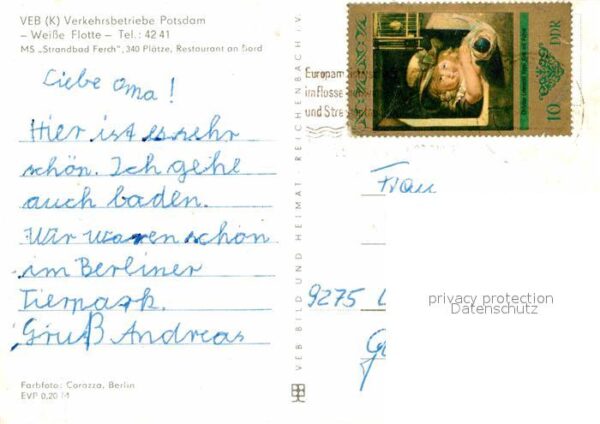 VEB (K) Verkehrsbetriebe Potsdam
– Weiße Flotte – Tel.: 42 41
MS „Strandbad Ferch", 340 Plätze, Restaurant an Bord
Liebe Oma!
Hier ist es sehr
schön. Ich gehe
auch baden.
Wir waren schon
im Berliner
Tierpark.
Gruß Andreas
Farbfoto: Corazza, Berlin
EVP 0,20 M
VEB BILD UND HEIMAT REICHENBACH i. V.
und
DDR
10
Frau
9275
privacy protection
Datenschutz